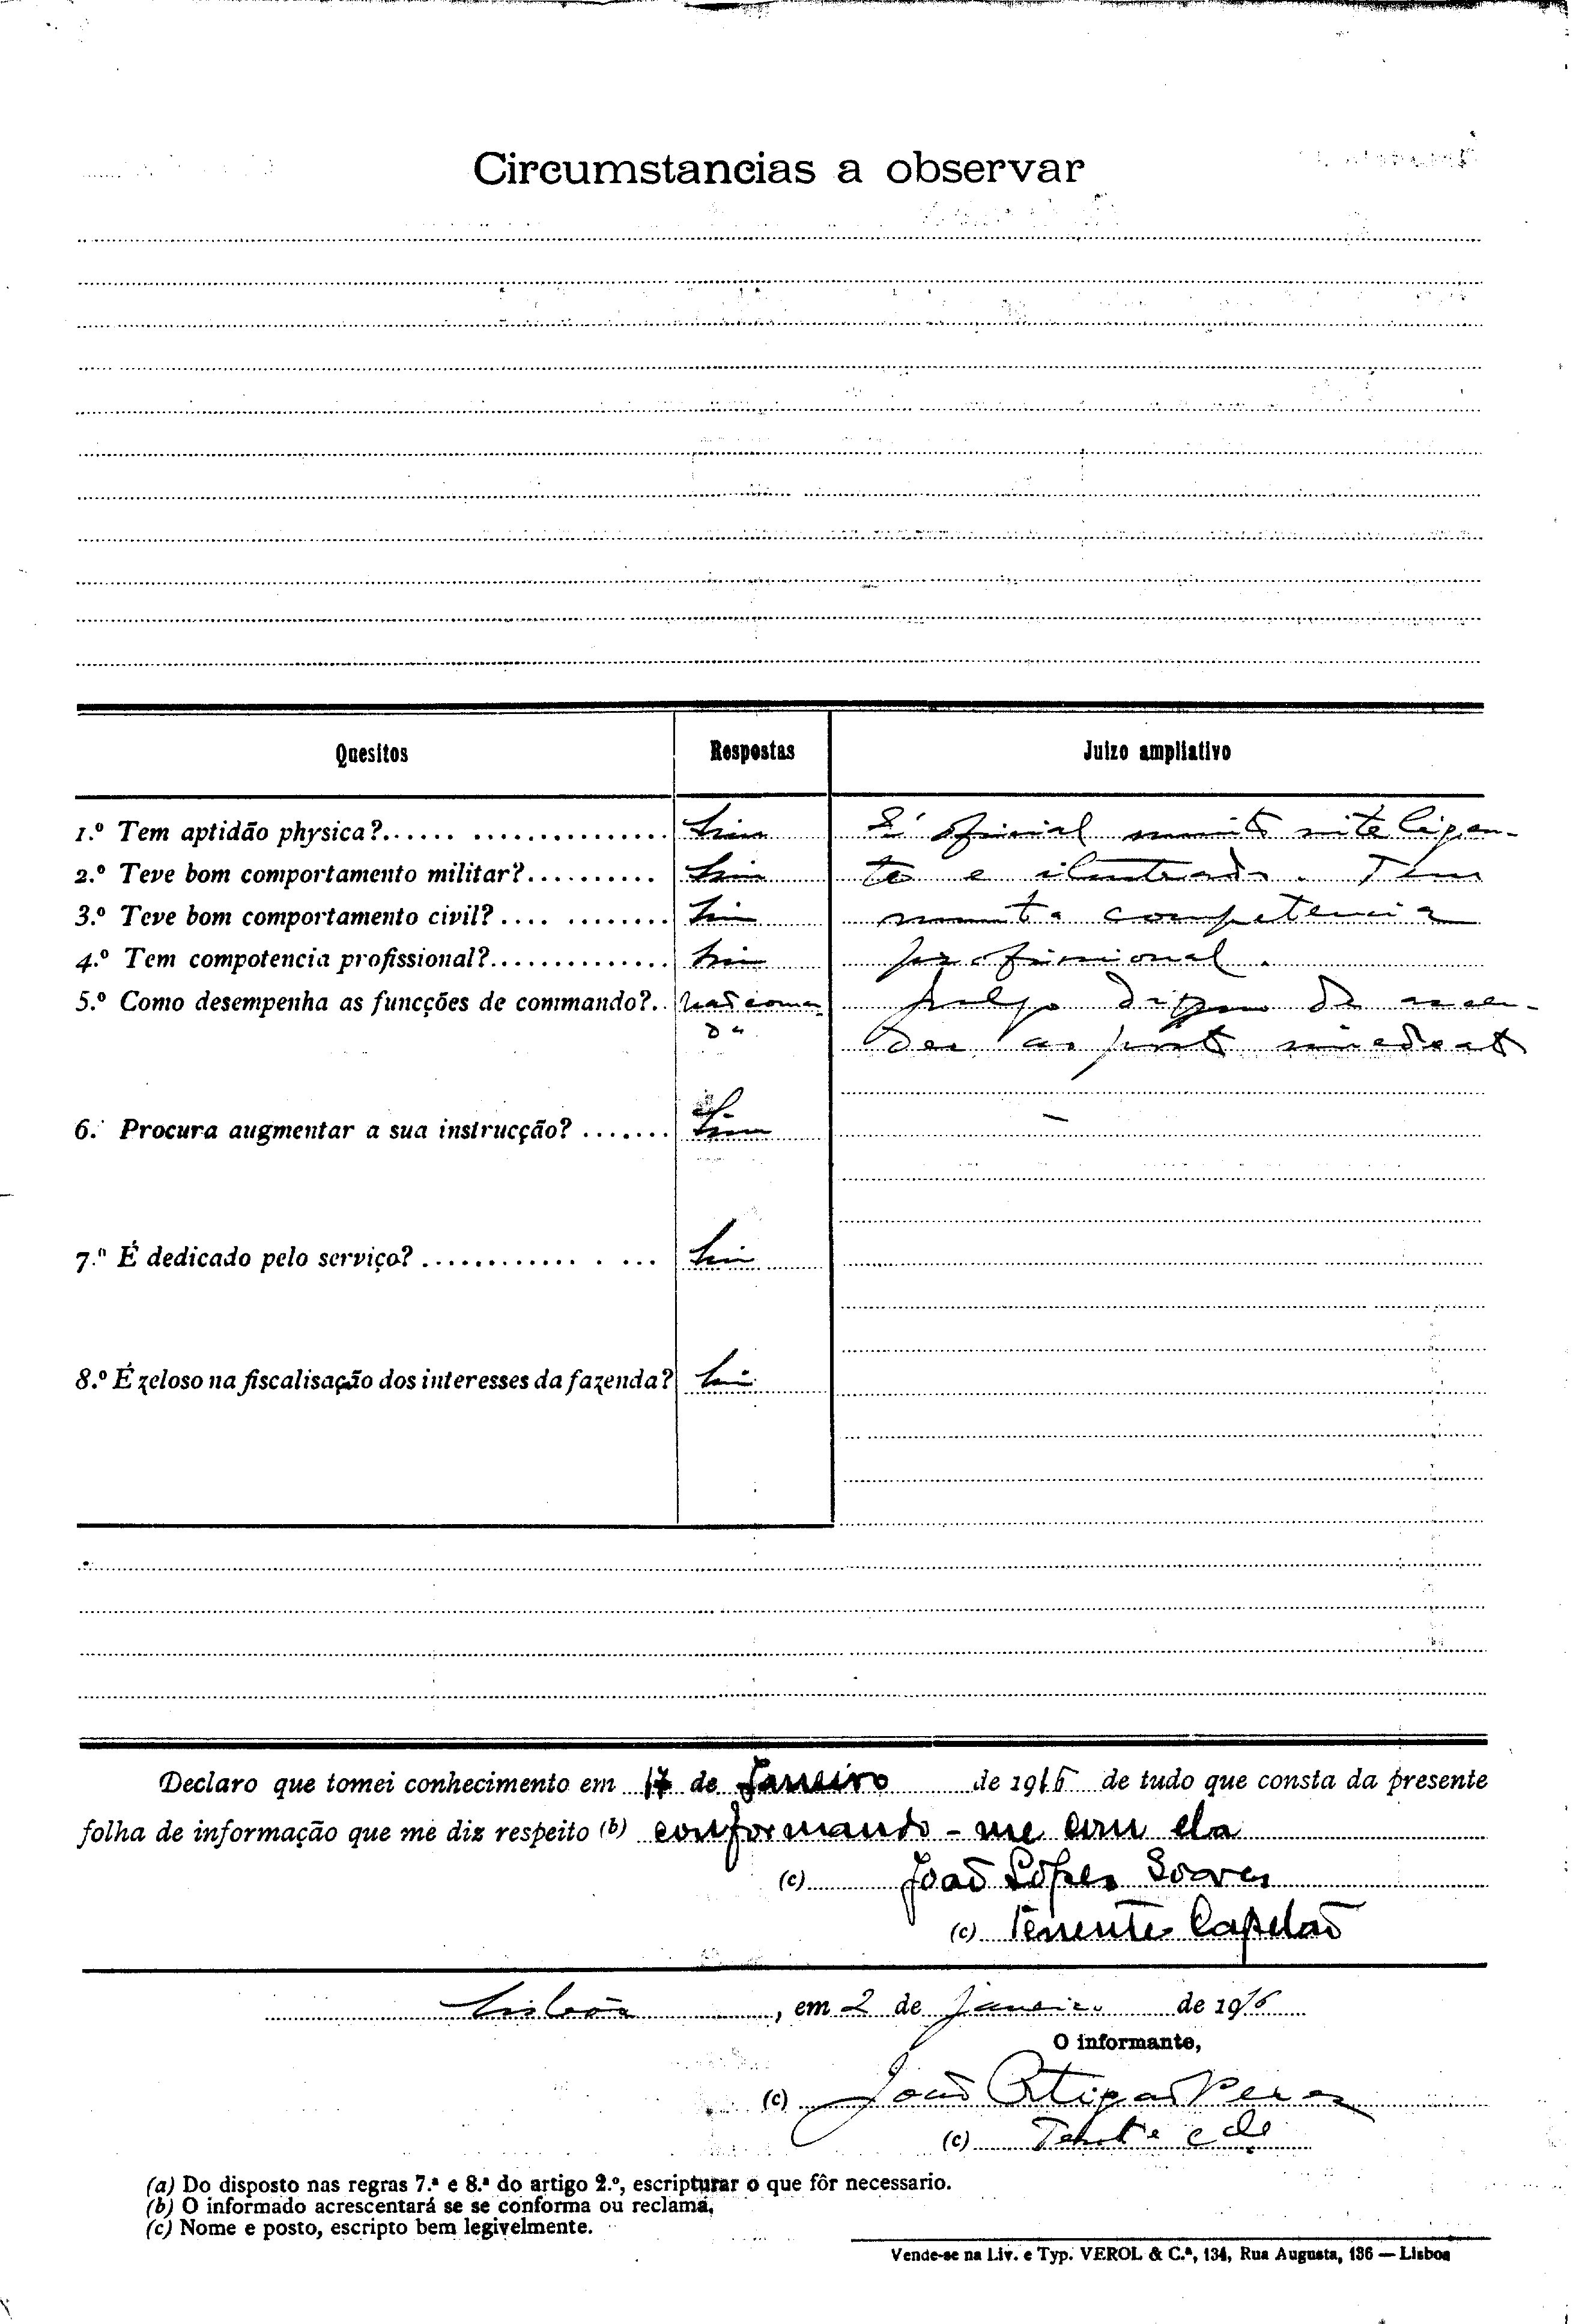 Circumstancias a observar
Quesitos Respostas Juizo ampliativo
1.º Tem aptidão physica? Sim É oficial muito inteligen-
2.º Teve bom comportamento militar? Sim te e ilustrado. Tem
3.º Teve bom comportamento civil? Sim muita competencia
4.º Tem compotencia profissional? Sim profissional.
5.º Como desempenha as funcções de commando? Não coman Julgo digno de ascen-
da der ao posto imediato
6.º Procura augmentar a sua instrucção? Sim
7.º É dedicado pelo serviço? Sim
8.º É zeloso na fiscalisação dos interesses da fazenda? Sim
Declaro que tomei conhecimento em 17 de Janeiro de 1916 de tudo que consta da presente
folha de informação que me diz respeito (b) conformando-me com ela
(c) João Lopes Soares
(c) Tenente Capelão
Lisboa, em 2 de Janeiro de 1916
O informante,
(c) João Ortigão Peres
(c)
(a) Do disposto nas regras 7.ª e 8.ª do artigo 2.º, escripturar o que fôr necessario.
(b) O informado acrescentará se se conforma ou reclama.
(c) Nome e posto, escripto bem legivelmente.
Vende-se na Liv. e Typ. VEROL & C.ª, 134, Rua Augusta, 136 — Lisboa